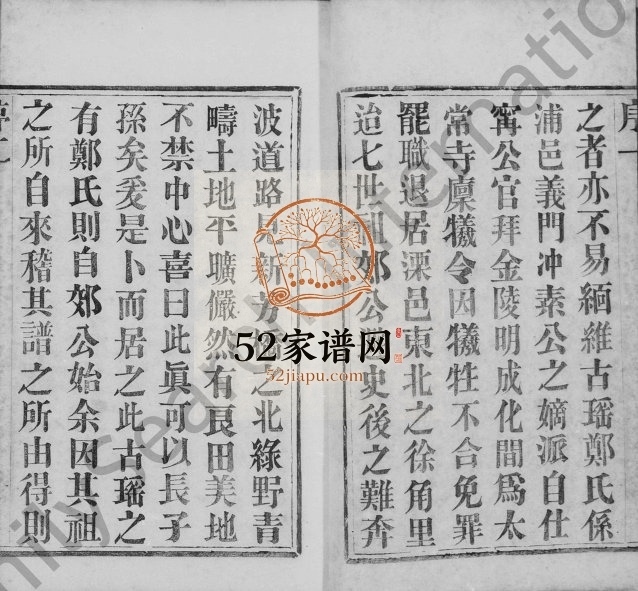 序一
之者亦不易緬維古瑶鄭氏係
浦邑義門冲素公之嫡派自仕
甯公官拜金陵明成化間爲太
常寺廪犧令因犧牲不合免罪
罷職退居溧邑東北之徐角里
迨七世 郊公 史後之難奔
波道路 新 之北綠野青
疇土地平曠儼然有良田美地
不禁中心喜曰此眞可以長子
孫矣爰是卜而居之此古瑶之
有鄭氏則自郊公始余因其祖
之所自來稽其譜之所由得則
52家谱网
52jiapu.com